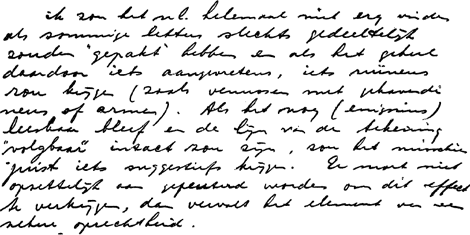 ik zou het n.l. helemaal niet erg vinden
als sommige letters slechts gedeeltelijk
zouden "gepakt" hebben en als het geheel
daardoor iets aangevretens, iets ruïneus
zou krijgen (zoals venussen met geschonden
neus of armen). Als het nog (enigszins)
leesbaar bleef en de lijn van de tekening
"volgbaar" intact zou zijn, zou het misschien
juist iets suggestiefs krijgen. Er moet niet
opzettelijk aan geknoeid worden om dit effect
te verkrijgen, dan vervalt het element van een
zekere oprechtheid.